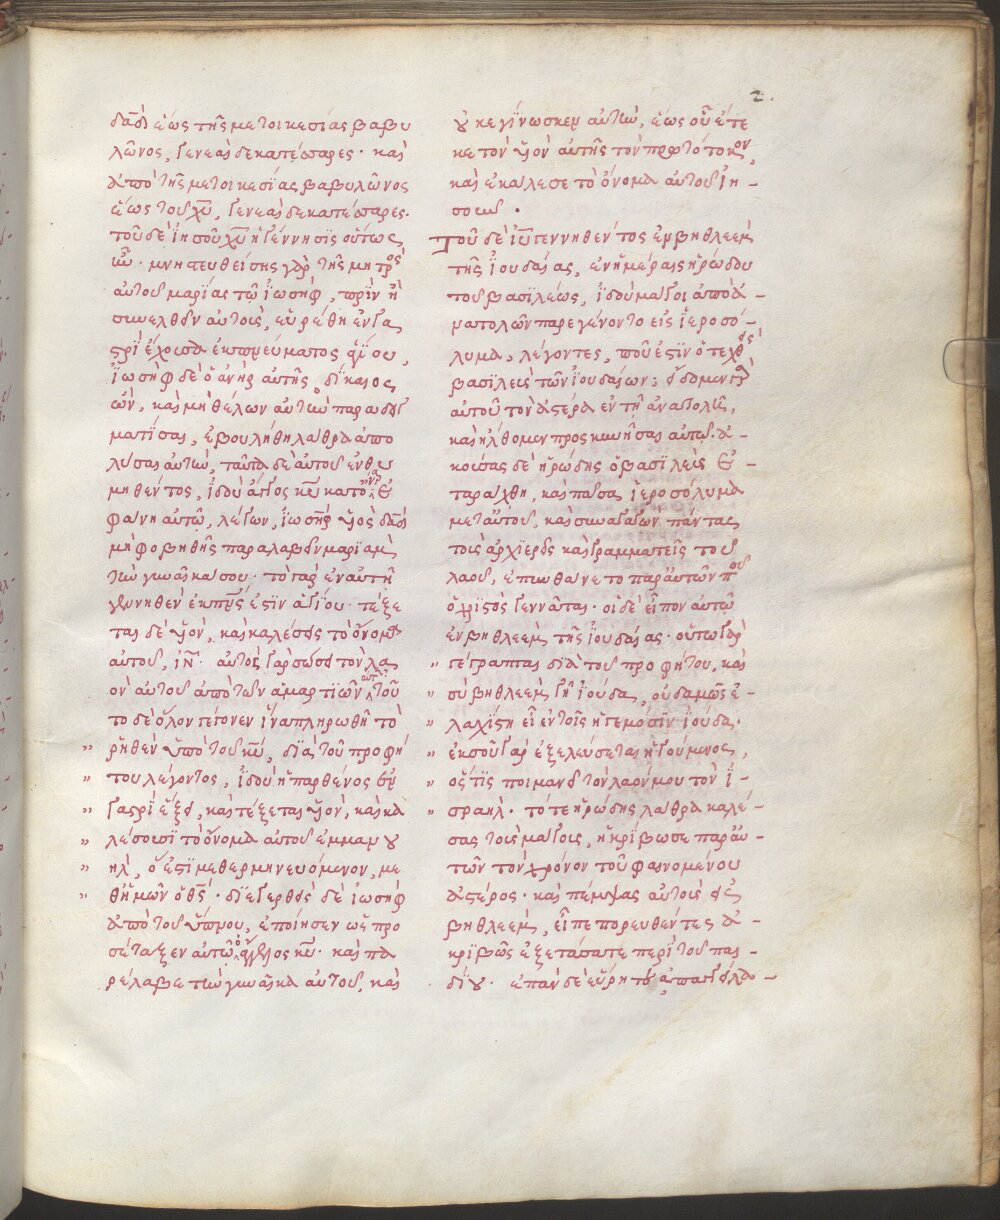 2.
δᾱδ ἕως τῆς μετοικεσίας βαβυ
λῶνος, γενεαὶ δεκατέσσαρες· καὶ
ἀπὸ τῆς μετοικεσίας βαβυλῶνος
ἕως τοῦ χῡ, γενεαὶ δεκατέσσαρες.
τοῦ δὲ ἰησοῦ χῡ ἡ γέννησϊς οὕτως
ἦν· μνηστευθείσης γὰρ τῆς μητρὸς
αὐτοῦ μαρίας τῶ ἰωσὴφ, πρὶν ἢ
συνελθεῖν αὐτοὺς, εὑρέθη ἐν γα
στρὶ ἔχουσα ἐκ πνεύματος ἁγίου,
ϊωσὴφ δὲ ὁ ἀνὴρ αὐτῆς, δίκαιος
ὢν, καὶ μὴ θέλων αὐτὴν παραδειγ
ματίσαι, ἐβουλήθη λάθρα ἀπο
λῦσαι αὐτὴν, ταῦτα δὲ αὐτοῦ ἐνθυ
μηθέντος, ἰδοὺ ἄγγελος κῡ κατ᾽ ὄναρ ἐ
φάνη αὐτῶ, λέγων, ἰωσὴφ υἱὸς δᾱδ
μὴ φοβηθῆς παραλαβεῖν μαριὰμ
τὴν γυναῖκα σου· τὸ γὰρ ἐν αὐτῆ
γεννηθὲν ἐκ πν̄ς ἐστὶν ἁγίου· τέξε
ται δὲ υἱὸν, καὶ καλέσεις τὸ ὄνομα
αὐτοῦ, ῑν̄· αὐτὸς γὰρ σώσει τὸν λα
ὸν αὐτοῦ ἀπὸ τῶν ἁμαρτϊῶν αὐτῶν τοῦ
το δὲ ὅλον γέγονεν ἵνα πληρωθῆ τὸ
" ῥηθὲν ὑπὸ τοῦ κῡ, διὰ τοῦ προφή
" του λέγοντος, ἰδοὺ ἡ παρθένος ἐν
" γαστρὶ ἕξει, καὶ τέξεται υἱὸν, καὶ κα
" λέσουσϊ τὸ ὄνομα αὐτοῦ ἐμμανου
" ὴλ, ὅ ἐστϊ μεθερμηνευόμενον, με
" θ᾽ ἡμῶν ὁ θς̄· διεγερθεὶς δὲ ἰωσὴφ
ἀπὸ τοῦ ὕπνου, ἐποίησεν ὡς προ
σέταξεν αὐτῶ ὁ ἄγγελος κῡ· καὶ πα
ρέλαβε τὴν γυναῖκα αὐτοῦ, καὶ
οὐκ ἐγίνωσκεν αὐτὴν, ἕως οὗ ἔτε
κε τὸν υἱὸν αὐτῆς τὸν πρωτότοκον,
καὶ ἐκάλεσε τὸ ὄνομα αὐτοῦ ἰη -
σοῦν ·
Τοῦ δὲ ῑῡ γεννηθέντος ἐν βηθλεὲμ
τῆς ἰουδαίας, ἐν ἡμέραις ἡρώδου
τοῦ βασιλέως, ἰδοὺ μάγοι ἀπὸ ἀ -
νατολῶν παρεγένοντο εἰς ἱεροσό -
λυμα, λέγοντες, ποῦ ἐστϊν ὁ τεχθεὶς
βασϊλεὺς τῶν ἰουδαίων; εἴδομεν γὰρ
αὐτοῦ τὸν ἀστέρα ἐν τῆ ἀνατολῆ,
καὶ ἤλθομεν προσκυνῆσαι αὐτῶ· ἀ -
κούσας δὲ ἡρώδης ὁ βασϊλεὺς ἐ -
ταράχθη, καὶ πᾶσα ἱεροσόλυμα
μετ᾽ αὐτοῦ, καὶ συναγαγὼν πάντας
τοὺς ἀρχϊερεῖς καὶ γραμματεῖς τοῦ
λαοῦ, ἐπυνθάνετο παρ᾽ αὐτῶν ποῦ
ὁ χριστὸς γεννᾶται· οἱ δὲ εἶπον αὐτῶ
ἐν βηθλεὲμ τῆς ἰουδαίας· οὕτω γὰρ
" γέγραπται διὰ τοῦ προφήτου, καὶ
" σὺ βηθλεὲμ γῆ ἰούδα, οὐδαμῶς ἐ -
" λαχίστη εἶ ἐν τοῖς ἡγεμόσϊν ἰούδα·
" ἐκ σοῦ γὰρ ἐξελεύσεται ἡγούμενος,
" ὅστϊς ποιμανεῖ τὸν λαόν μου τὸν ἰ -
" σραήλ· τότε ἡρώδης λάθρα καλέ -
σας τοὺς μάγους, ἠκρίβωσε παρ᾽ αὐ -
τῶν τὸν χρόνον τοῦ φαινομένου
ἀστέρος· καὶ πέμψας αὐτοὺς εἰς
βηθλεὲμ, εἶπε πορευθέντες ἀ -
κριβῶς ἐξετάσατε περὶ τοῦ παι -
δίου· ἐπὰν δὲ εὕρητε, ἀπαγγείλα -